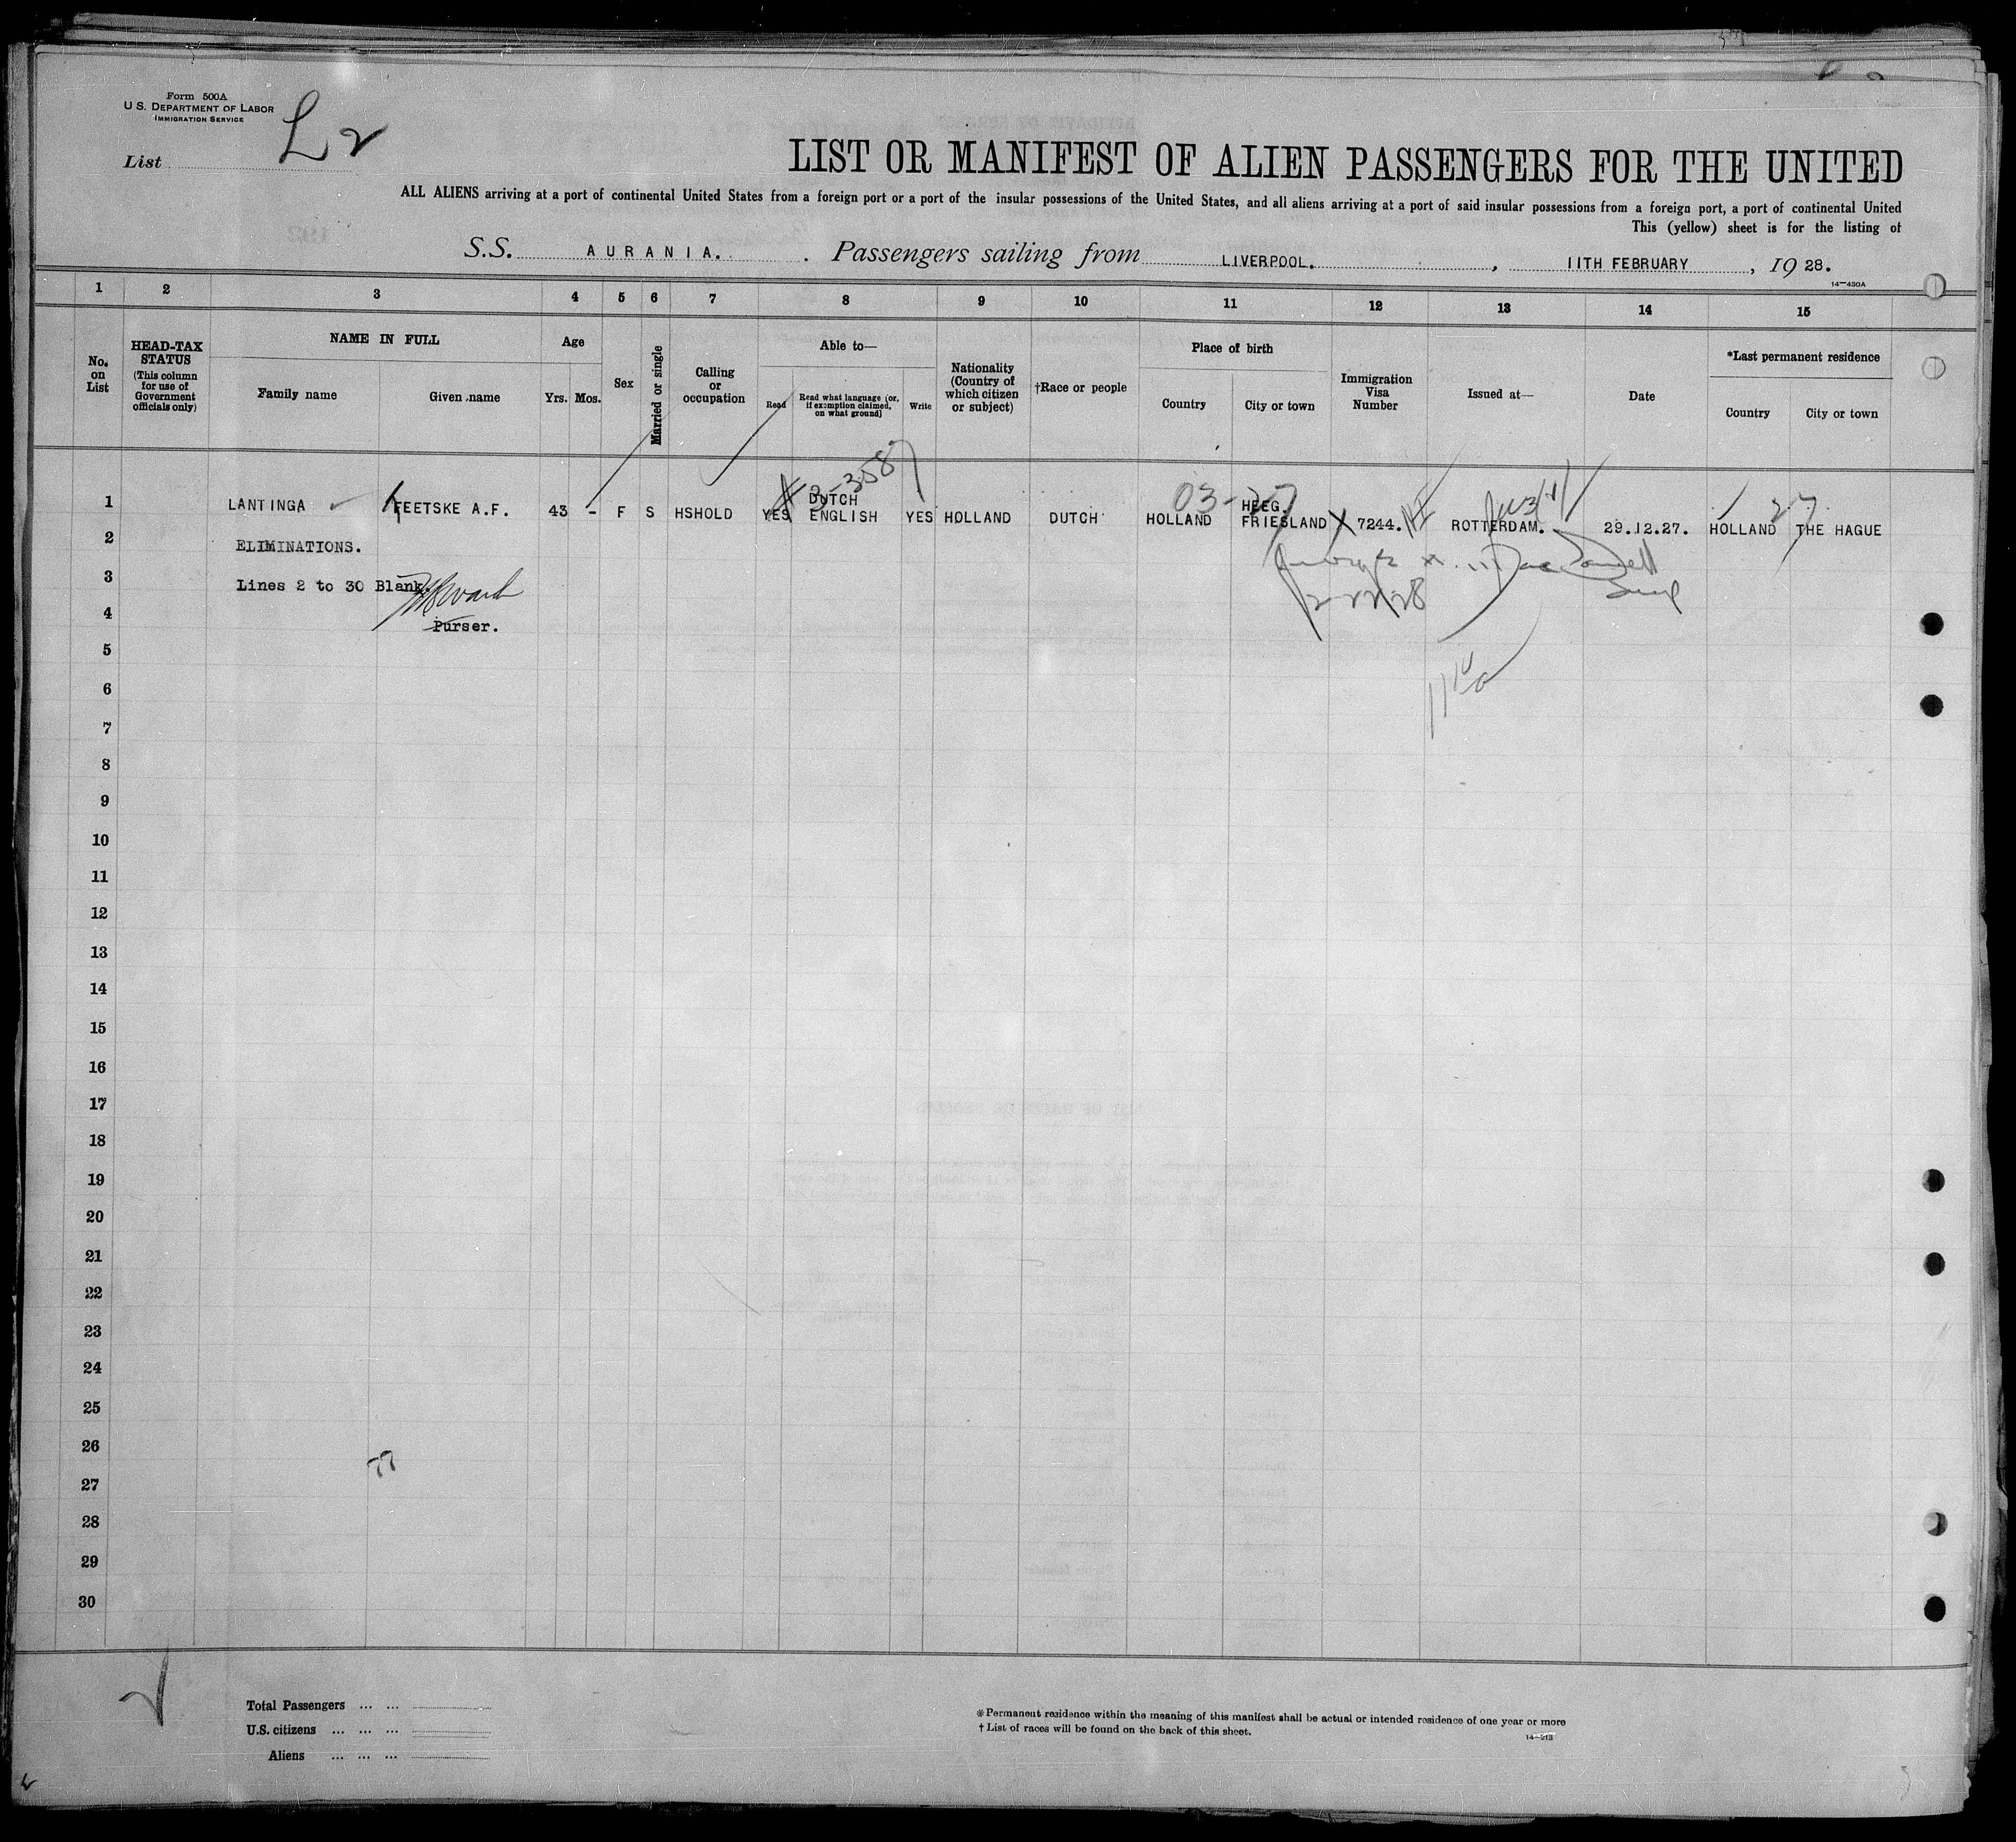 Form 500A
U S. DEPARTMENT OF LABOR
IMMIGRATION SERVICE
List L2
LIST OR MANIFEST OF ALIEN PASSENGERS FOR THE UNITED
ALL ALIENS arriving at a port of continental United States from a foreign port or a port of the insular possessions of the United States, and all aliens arriving at a port of said insular possessions from a foreign port, a port of continental United
This (yellow) sheet is for the listing of
S.S. AURANIA. Passengers sailing from LIVERPOOL. , 11TH FEBRUARY , 19 28.
14—430A
1 2 3 4 5 6 7 8 9 10 11 12 13 14 15
No. on List
HEAD-TAX STATUS (This column for use of Government officials only)
NAME IN FULL
Family name Given name
Age
Yrs. Mos.
Sex
Married or single
Calling or occupation
Able to—
Read Read what language (or, if exemption claimed, on what ground) Write
Nationality (Country of which citizen or subject)
†Race or people
Place of birth
Country City or town
Immigration Visa Number
Issued at—
Date
*Last permanent residence
Country City or town
3-3587
03-27
27
1 LANTINGA FEETSKE A.F. 43 - F S HSHOLD YES DUTCH ENGLISH YES HOLLAND DUTCH HOLLAND HEEG. FRIESLAND 7244. ROTTERDAM. 29.12.27. HOLLAND THE HAGUE
2 ELIMINATIONS.
3 Lines 2 to 30 Blank.
4 Purser.
5
6
7
8
9
10
11
12
13
14
15
16
17
18
19
20
21
22
23
24
25
26
27
28
29
30
Total Passengers ... ...
U.S. citizens ... ... ...
Aliens ... ... ...
* Permanent residence within the meaning of this manifest shall be actual or intended residence of one year or more
† List of races will be found on the back of this sheet.
14—213